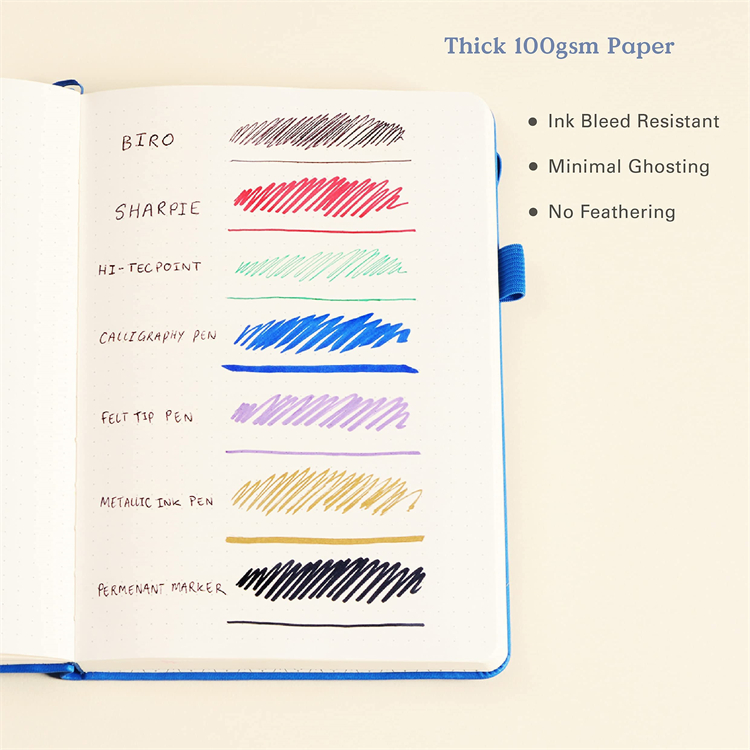 Thick 100gsm Paper
Ink Bleed Resistant
Minimal Ghosting
No Feathering
BIRO
SHARPIE
HI-TECPOINT
CALLIGRAPHY PEN
FELT TIP PEN
METALLIC INK PEN
PERMENANT MARKER